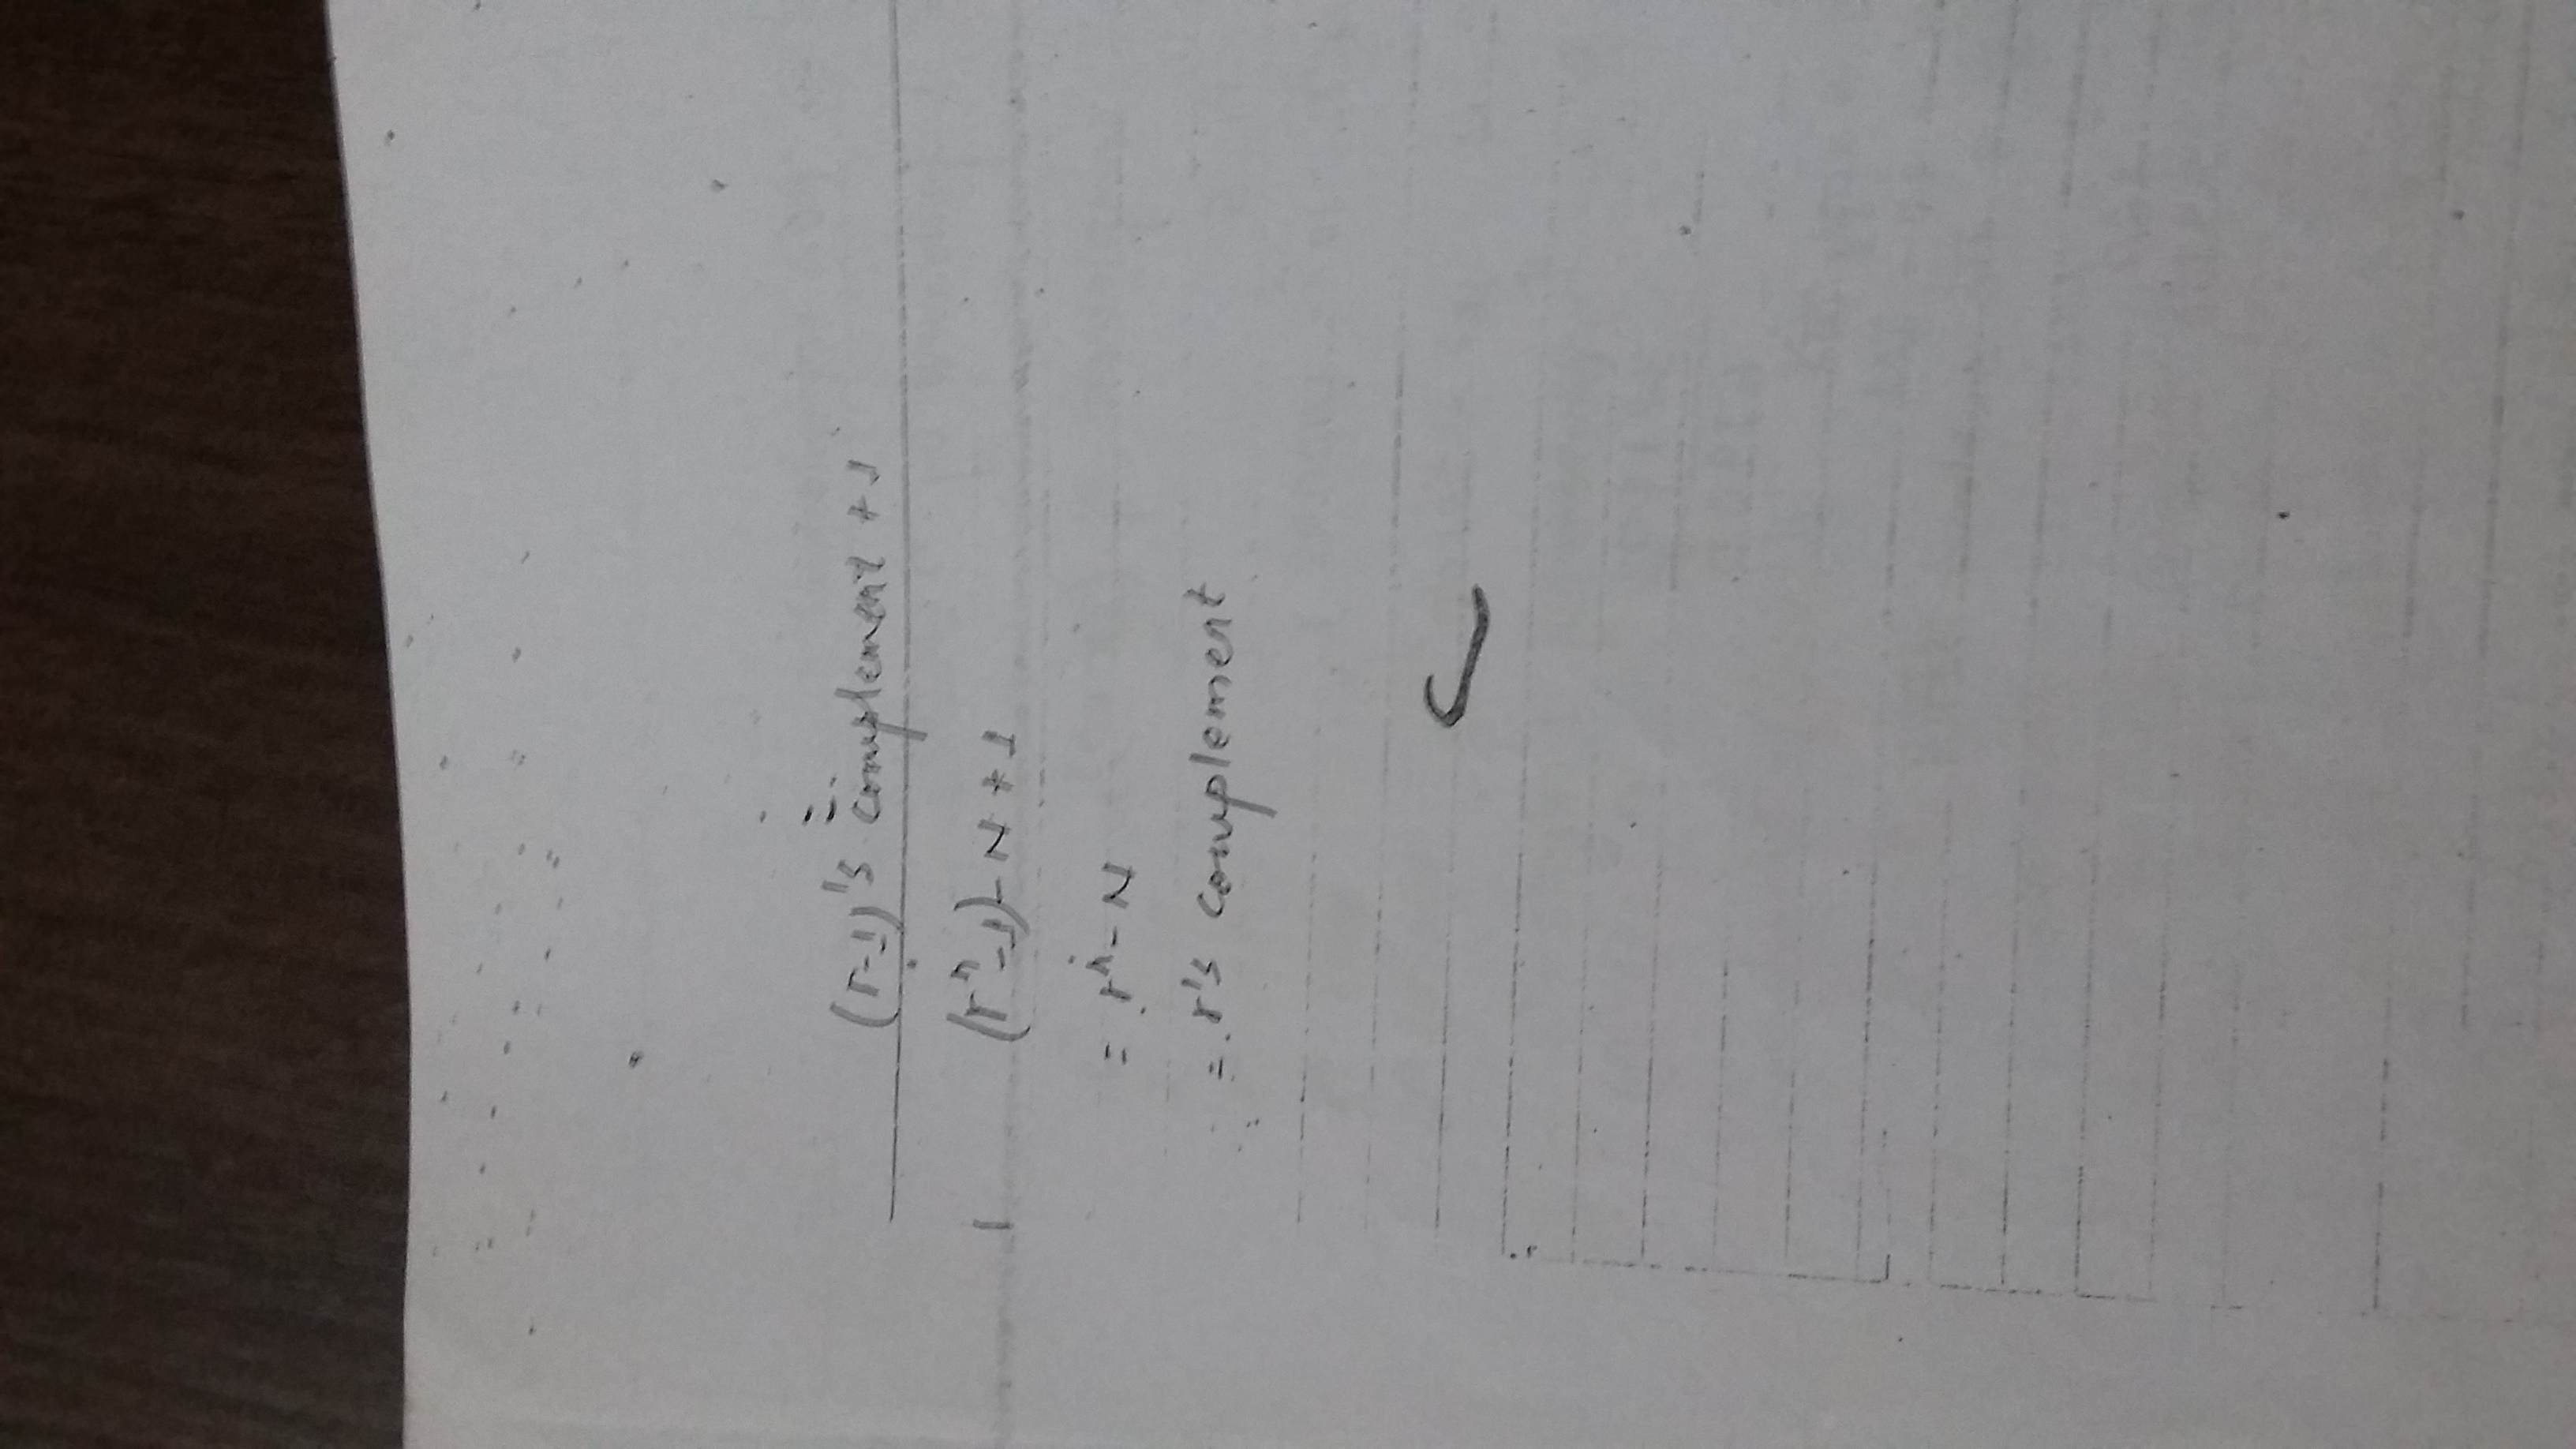 (r-1)'s complement + 1
(rⁿ-1)-N+1
= rⁿ-N
= r's complement